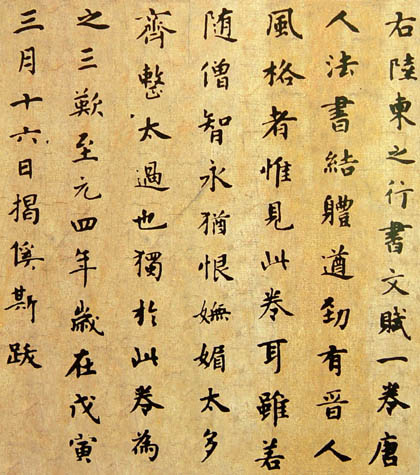 右陸柬之行書文賦一卷唐
人法書結體遒勁有晋人
風格者惟見此卷耳雖若
随僧智永猶恨嫵媚太多
齊整太過也獨於此卷為
之三歎至元四年歲在戊寅
三月十六日揭傒斯跋